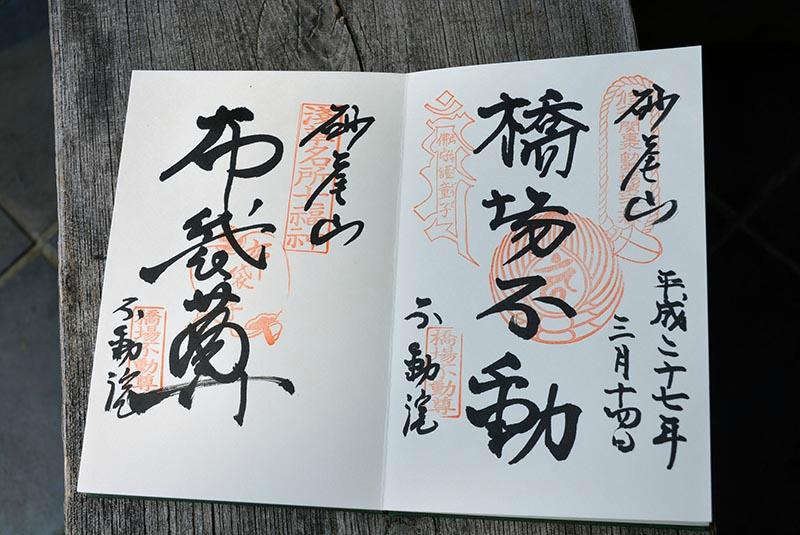 砂尾山
橋場不動
不動院
平成二十七年
三月十四日
橋場不動尊
砂尾山
布袋尊
不動院
浅草名所七福神
橋場不動尊